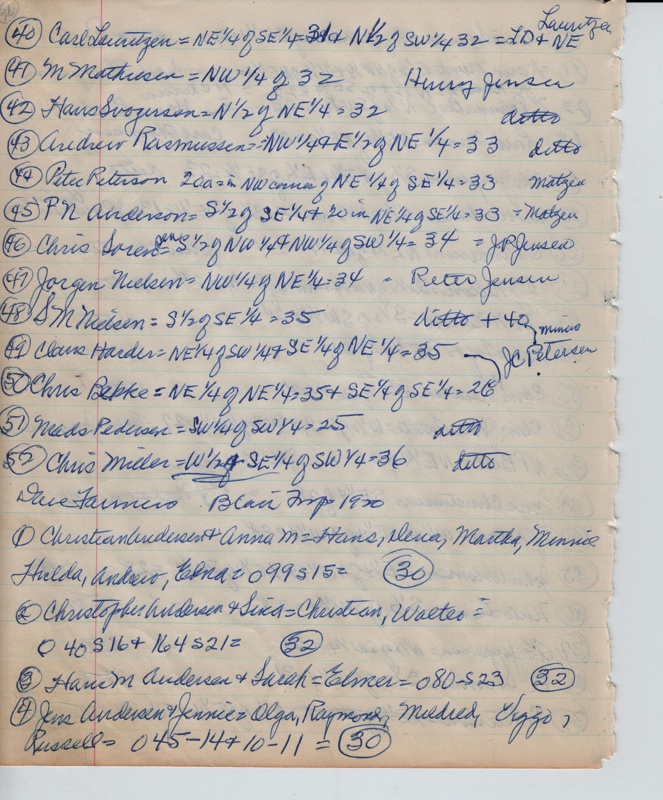 Lauritzen
(40) Carl Lauritzen = NE 1/4 of SE 1/4 = 31 + N 1/2 of SW 1/4 32 = LD + NE
(41) M Mathiesen = NW 1/4 of 32 Henry Jensen
(42) Hans = N 1/2 of NE 1/4 = 32 ditto
(43) Andrew Rasmussen = NW 1/4 + E 1/2 of NE 1/4 = 33 ditto
(44) Peter Peterson 20a = in NW corner of NE 1/4 of SE 1/4 = 33 Matzen
(45) P N Anderson = S 1/2 of SE 1/4 + 20 in NE 1/4 of SE 1/4 = 33 = Matzen
(46) Chris Sorensen = S 1/2 of NW 1/4 + NW 1/4 of SW 1/4 = 34 = J P Jensen
(47) Jorgen Nielsen = NW 1/4 of NE 1/4 = 34 - Peter Jensen
(48) S M Nielsen = S 1/2 of SE 1/4 = 35 ditto + 40
minus
(49) Claus Harder = NE 1/4 of SW 1/4 + SE 1/4 of NE 1/4 = 35 J C Petersen
(50) Chris Bepke = NE 1/4 of NE 1/4 = 35 + SE 1/4 of SE 1/4 = 26
(51) Mads Pedersen = SW 1/4 of SW 1/4 = 25 ditto
(52) Chris Miller = W 1/2 of SE 1/4 of SW 1/4 = 36 ditto
Dane Farmers - Blair Twp 1920
(1) Christian Andersen + Anna M = Hans, Martha, Minnie
Hulda, Andrew, Edna = 099 S15 = (30)
(2) Christopher Andersen + Sina = Christian, Walter =
040 S16 + 164 S21 = (32)
(3) Hans M Andersen + Sarah = Elmer = 080-S23 (32)
(4) Jens Andersen + Jennie = Olga, Raymond, Mildred, Viggo,
Russell = 045-14 + 10-11 = (30)